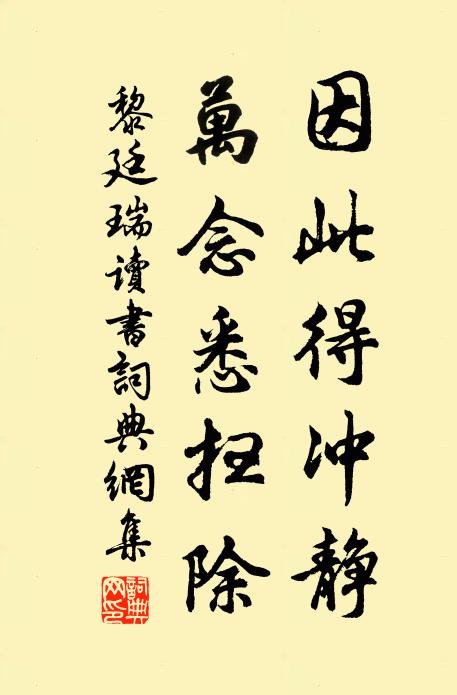 因此得冲静
萬念悉扫除
黎廷瑞讀書詞典網集
詞典网印